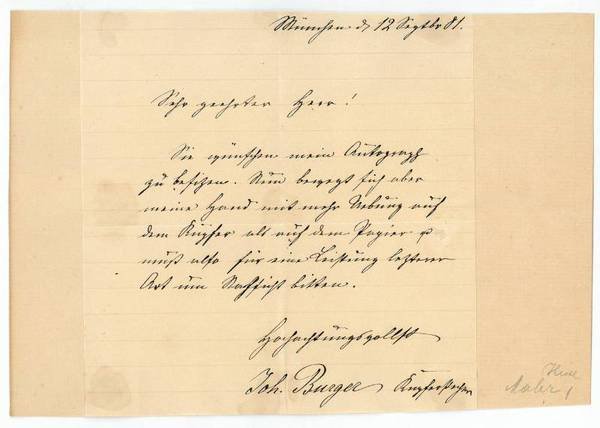 München d 12 Septbr 81.
Sehr geehrter Herr!
Sie wünschen mein Autograph
zu besitzen. Nun bewegt sich aber
meine Hand mit mehr Uebung auf
dem Kupfer als auf dem Papier u
muß also für eine Leistung letzterer
Art um Nachsicht bitten.
Hochachtungsvollst
Joh. Burger Kupferstecher